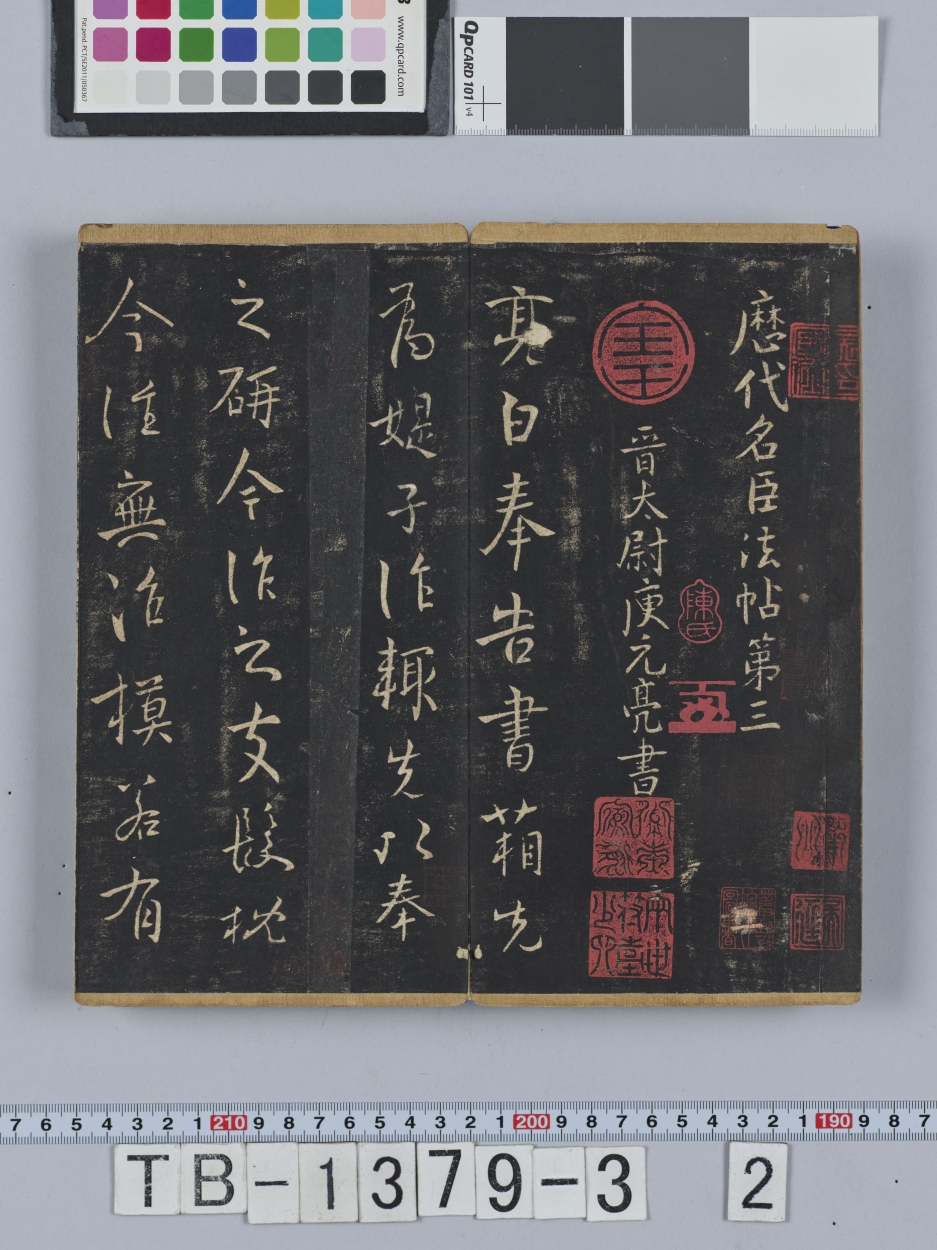 www.qpcard.com
Pat.pend. PCT/SE2011/050367
QPCARD 101 v4
歷代名臣法帖第三
晉太尉庾元亮書
亮白奉告書箱先
為媞子作輙先以奉
之研今作之支髮枕
今往無冶模若有
陳氏
7 6 5 4 3 2 1 210 9 8 7 6 5 4 3 2 1 200 9 8 7 6 5 4 3 2 1 190 9 8 7
TB-1379-3 2